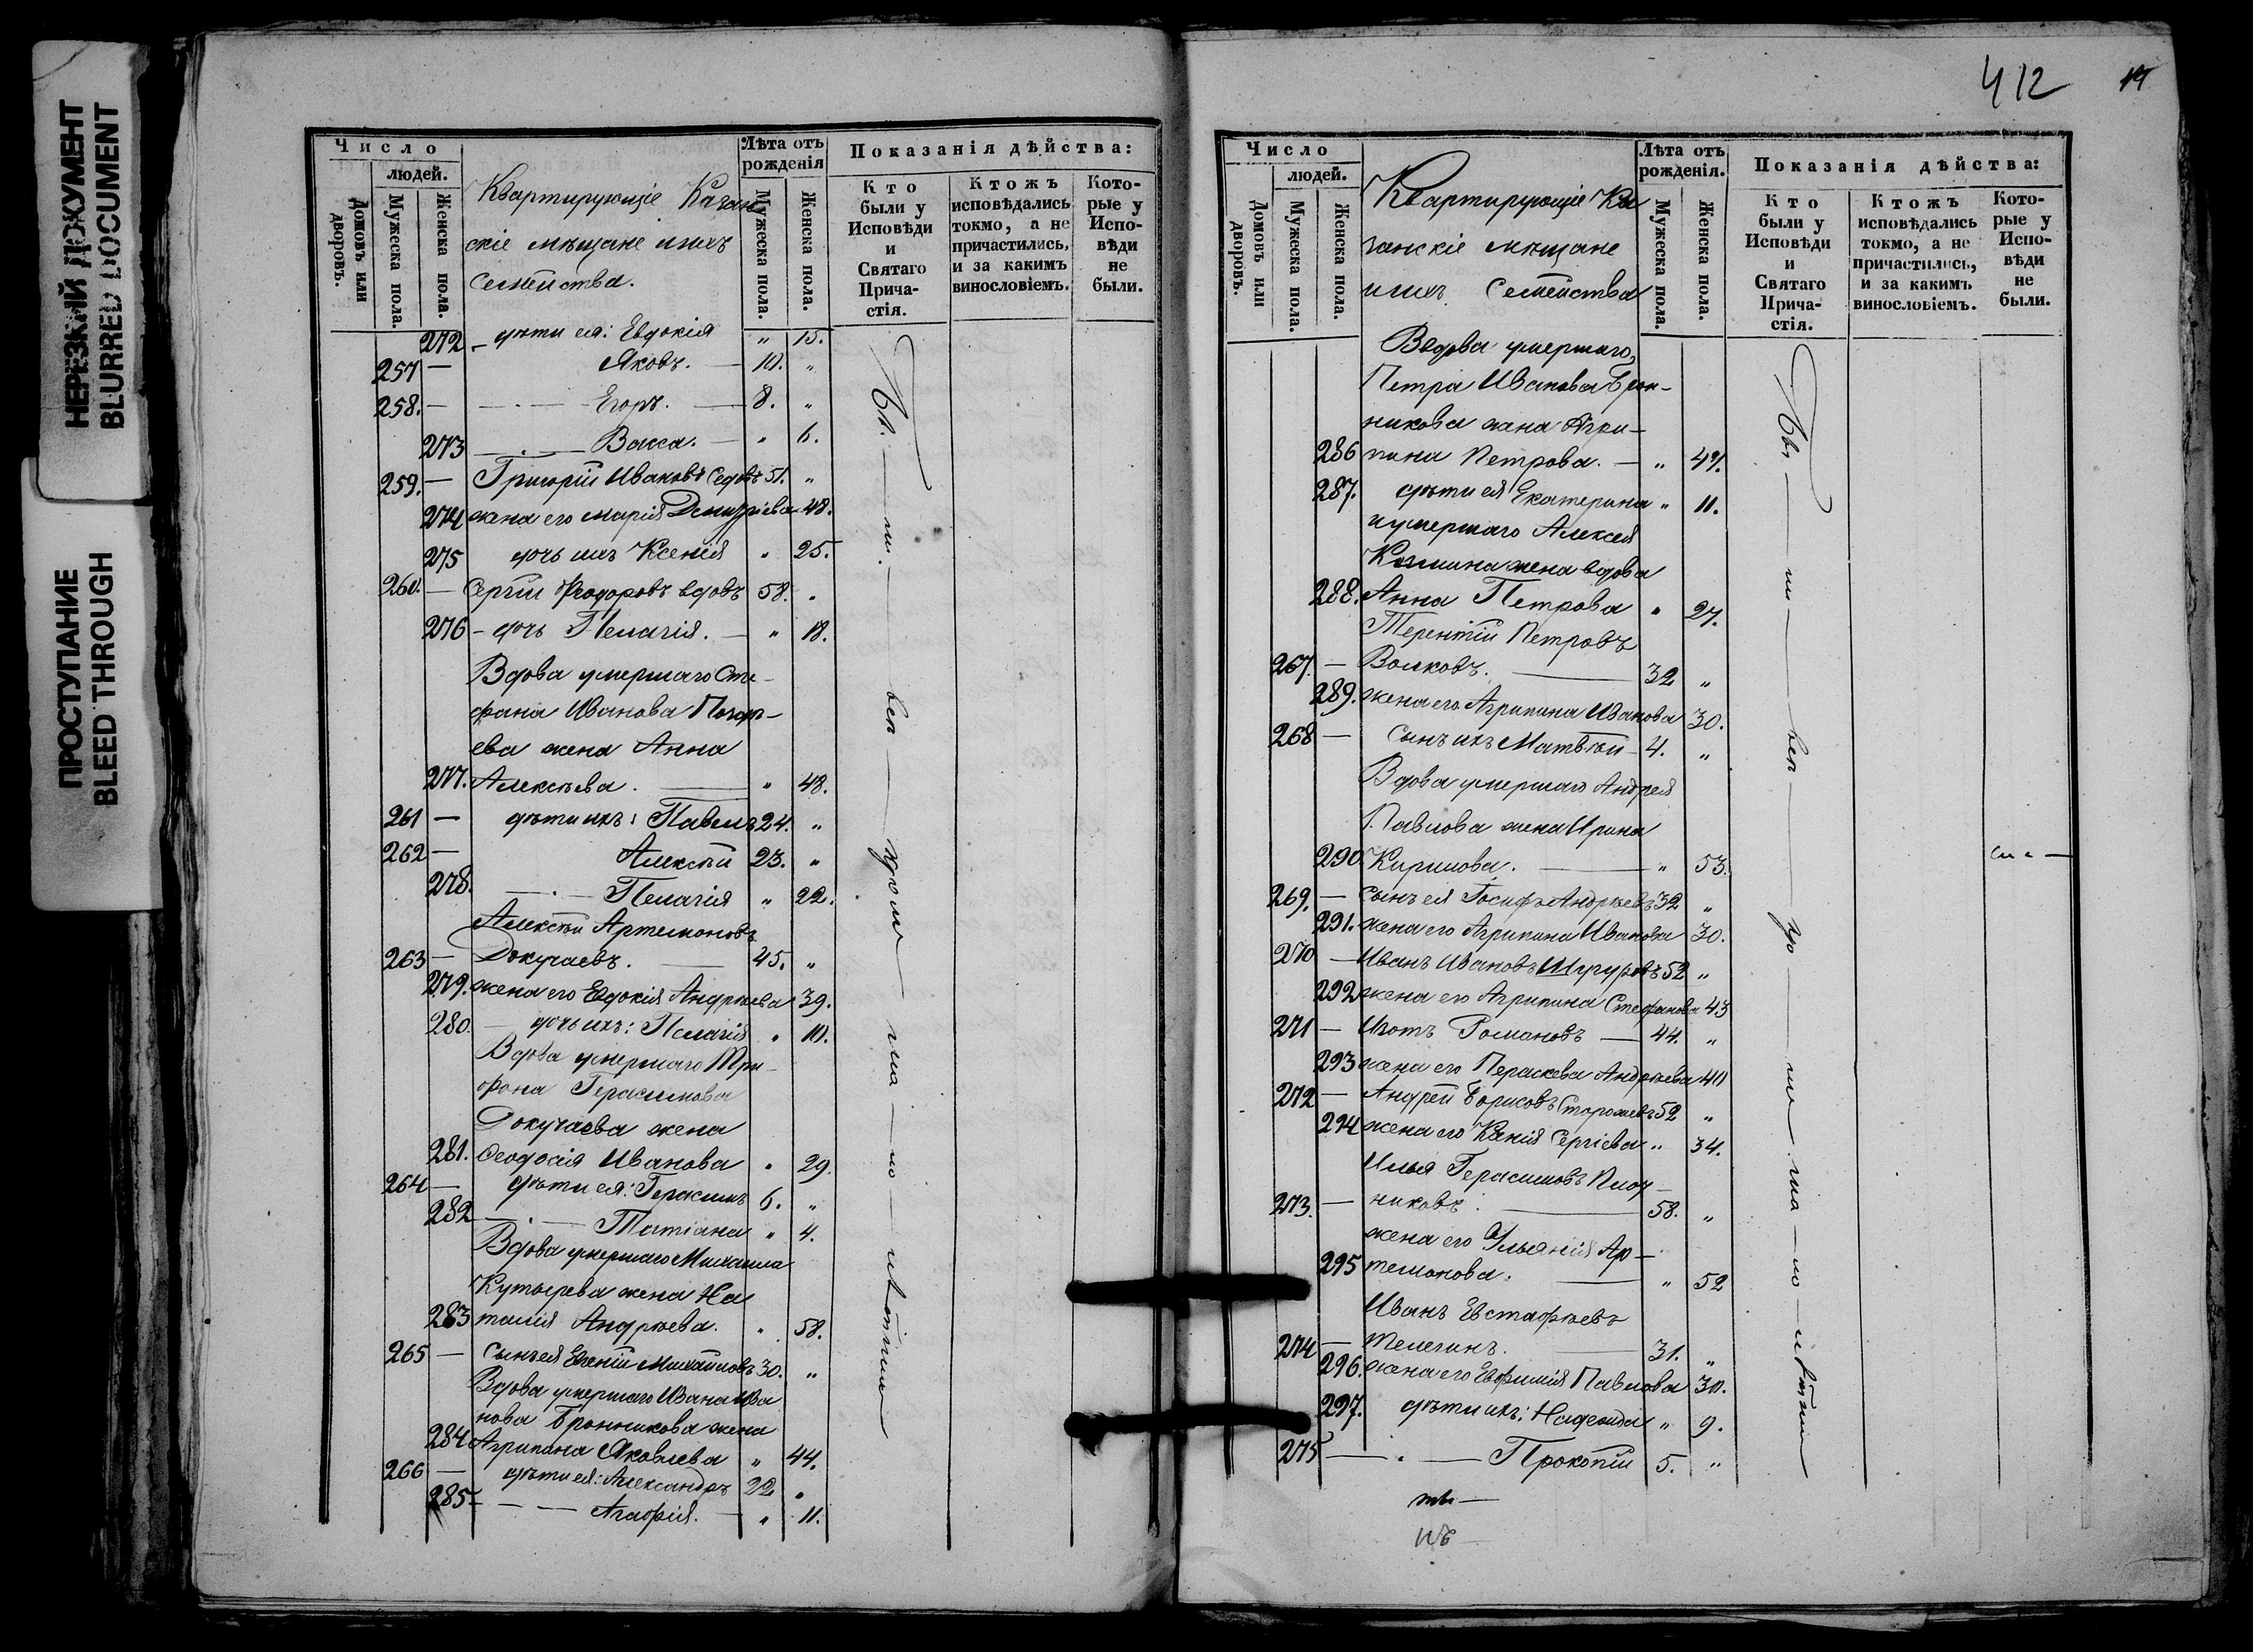 НЕРЕЗКИЙ ДОКУМЕНТ
BLURRED DOCUMENT
ПРОСТУПАНИЕ
BLEED THROUGH
Число
людей.
Домовъ или дворовъ.
Мужеска пола.
Женска пола.
Квартирующіе Казан
скіе мѣщане и ихъ
Семейства.
Лѣта отъ рожденія
Мужеска пола.
Женска пола.
Показанія дѣйства:
Кто были у Исповѣди и Святаго Прича-стія.
Ктожъ исповѣдались токмо, а не причастились, и за какимъ винословіемъ.
Кото-рые у Испо-вѣди не были.
272 - дѣти ея: Евдокія " 15.
257 — Яковъ. — 10. "
258. — — . — Егоръ. — 8. "
273 — . — Васса. — " 6.
259. — Григорій Ивановъ Седовъ 51. "
274 жена его Марія Димитріева 48.
275 дочь ихъ Ксенія " 25.
260. — Сергій Ѳеодоровъ вдовъ 58. "
276 - дочь Пелагія. — " 18.
Вдова умершаго Сте-
фана Иванова
ева жена Анна
277. Алексѣева. — " 48.
261 — дѣти ихъ: Павелъ 24. "
262 — Алексѣй 23. "
278. — . — Пелагія " 22.
Алексѣй Артемоновъ
263 — Докучаевъ. — 45. "
279. жена его Евдокія Андреева 39.
280. — дочь ихъ: Пелагія " 10.
Вдова умершаго Три-
фона Герасимова
Докучаева жена
281. Ѳеодосія Иванова " 29.
264 — дѣти ея: Герасимъ 6. "
282 — . — Татіана " 4.
Вдова умершаго Михаила
Кутырева жена На
283 талія Андреева. " 58.
265 — Сынъ ея Евгеній Михайловъ 30. "
Вдова умершаго Ивана Ива
нова Бронникова жена
284 Агрипина Яковлева " 44.
266 — дѣти ея: Александръ 22 "
285 — — Агафія. — " 11.
412
Число
людей.
Домовъ или дворовъ.
Мужеска пола.
Женска пола.
Квартирующіе Ка
занскіе мѣщане
и ихъ Семейства
Лѣта отъ рожденія.
Мужеска пола.
Женска пола.
Показанія дѣйства:
Кто были у Исповѣди и Святаго Прича-стія.
Ктожъ исповѣдались токмо, а не причастились, и за какимъ винословіемъ.
Кото-рые у Испо-вѣди не были.
Вдова умершаго
Петра Иванова Брон-
никова жена Агри-
286 пина Петрова. — " 47.
287. дѣти ея Екатерина " 11.
и умершаго Алексея
Козмина жена вдова
288. Анна Петрова " 27.
Терентій Петровъ
267. — Волковъ. — 32 "
289. жена его Агрипина Иванова 30.
268 — Сынъ ихъ Матвѣй — 4. "
Вдова умершаго Андрея
Павлова жена Ирина
290. Кирилова. — " 53.
269. — Сынъ ея Іосифъ Андреевъ 32 "
291. жена его Агрипина Иванова 30.
270 — Иванъ Ивановъ 52 "
292 жена его Агрипина Стефанова 43
271 — Изотъ Романовъ — 44. "
293 жена его Параскева Андреева 40
272 — Андрей Борисовъ Сторожевъ 52 "
294 жена его Ксенія Сергіева " 34.
Илья Герасимовъ Плот-
273. — никовъ. — 58. "
жена его Ульянія Ар-
295 темонова. — " 52
Иванъ Евстафьевъ
274 — Телегинъ. — 31. "
296. жена его Евфимія Павлова 30.
297. дѣти ихъ: Надежда " 9.
275 — . — Прокопій 5. "